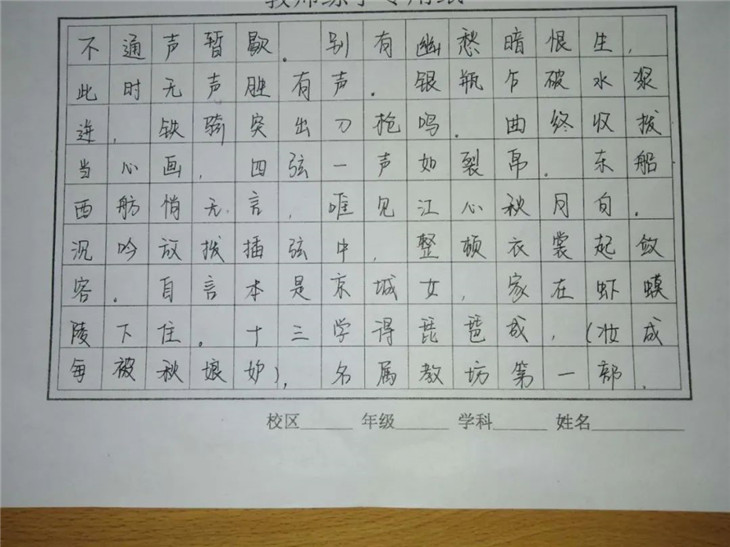 教师练字专用纸
不通声暂歇.别有幽愁暗恨生,
此时无声胜有声.银瓶乍破水浆
迸,铁骑突出刀枪鸣.曲终收拨
当心画,四弦一声如裂帛.东船
西舫悄无言,唯见江心秋月白.
沉吟放拨插弦中,整顿衣裳起敛
容.自言本是京城女,家在虾蟆
陵下住.十三学得琵琶成,(妆成
每被秋娘妒),名属教坊第一部.
校区 年级 学科 姓名